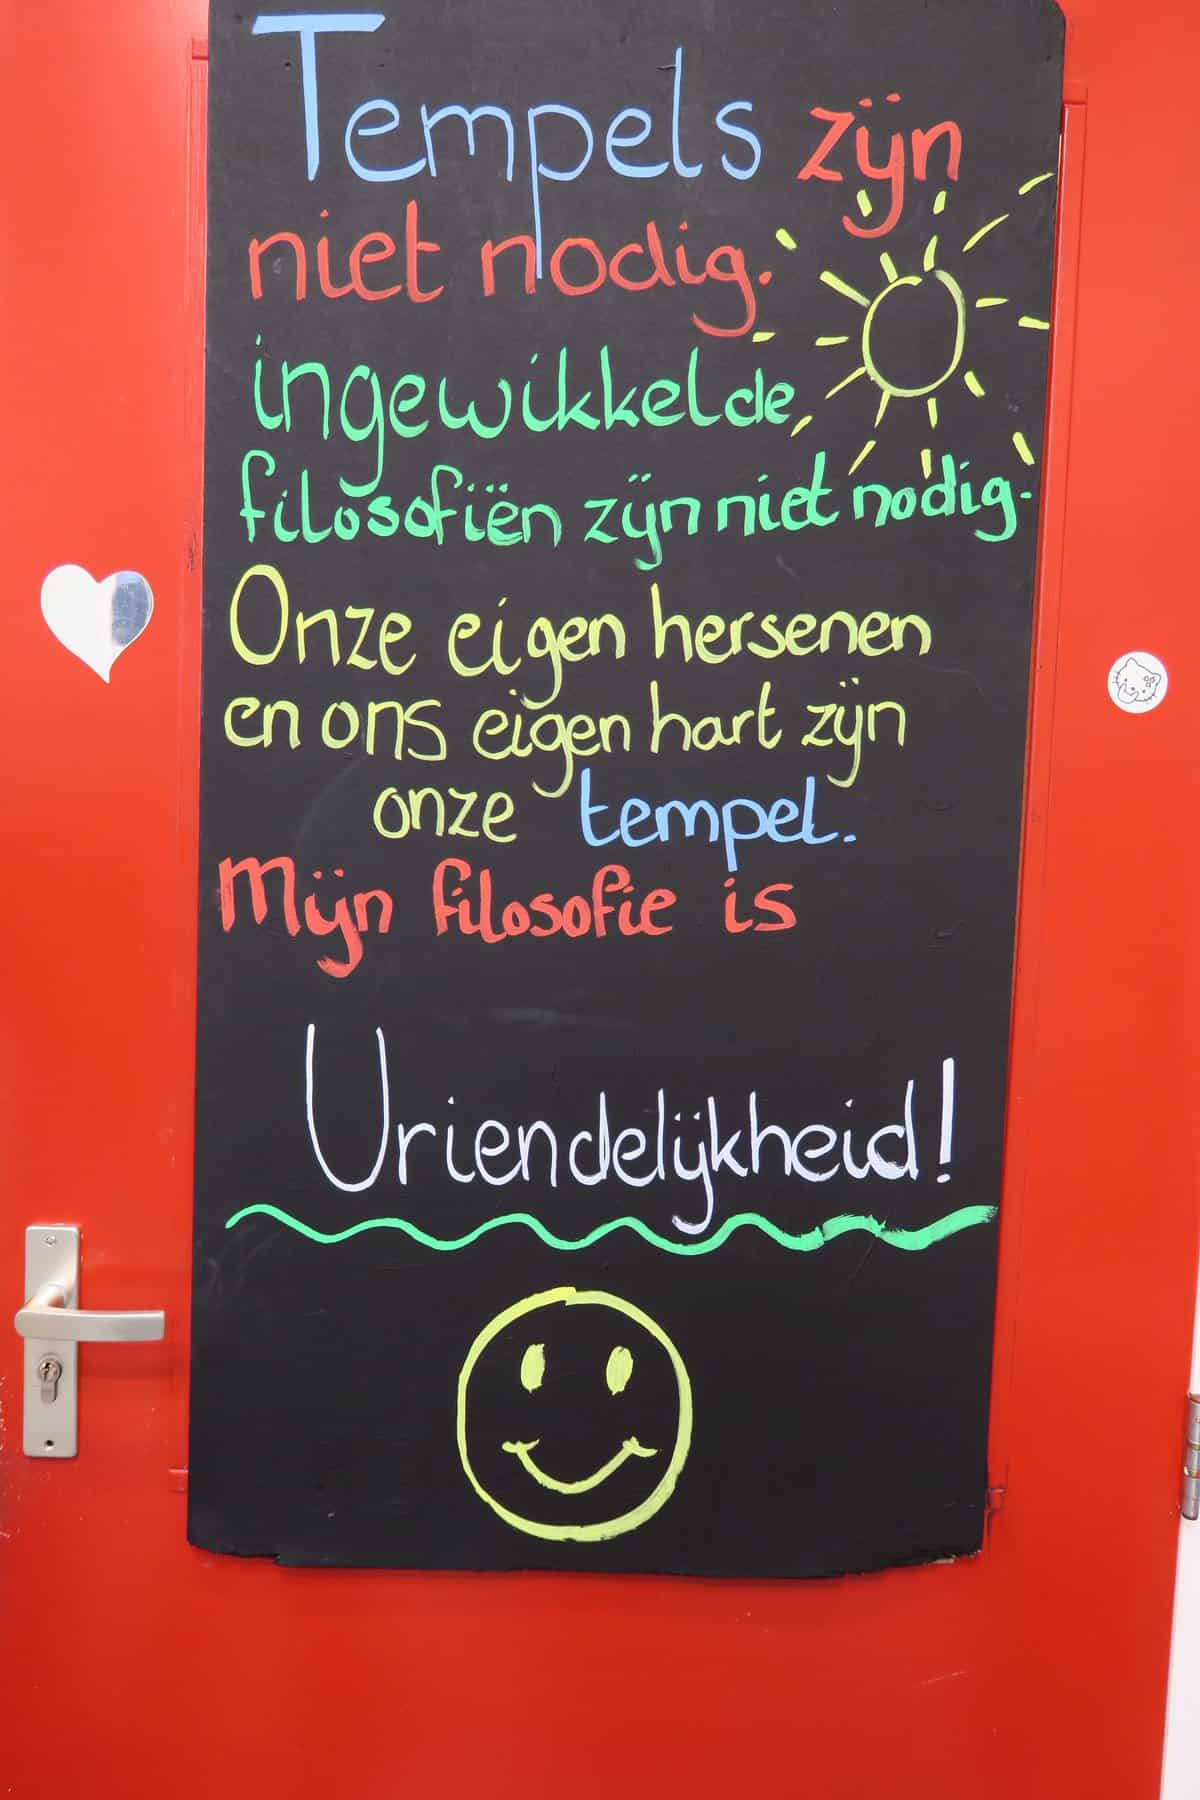 Tempels zijn
niet nodig.
ingewikkelde
filosofiën zijn niet nodig.
Onze eigen hersenen
en ons eigen hart zijn
onze tempel.
Mijn filosofie is
Vriendelijkheid!